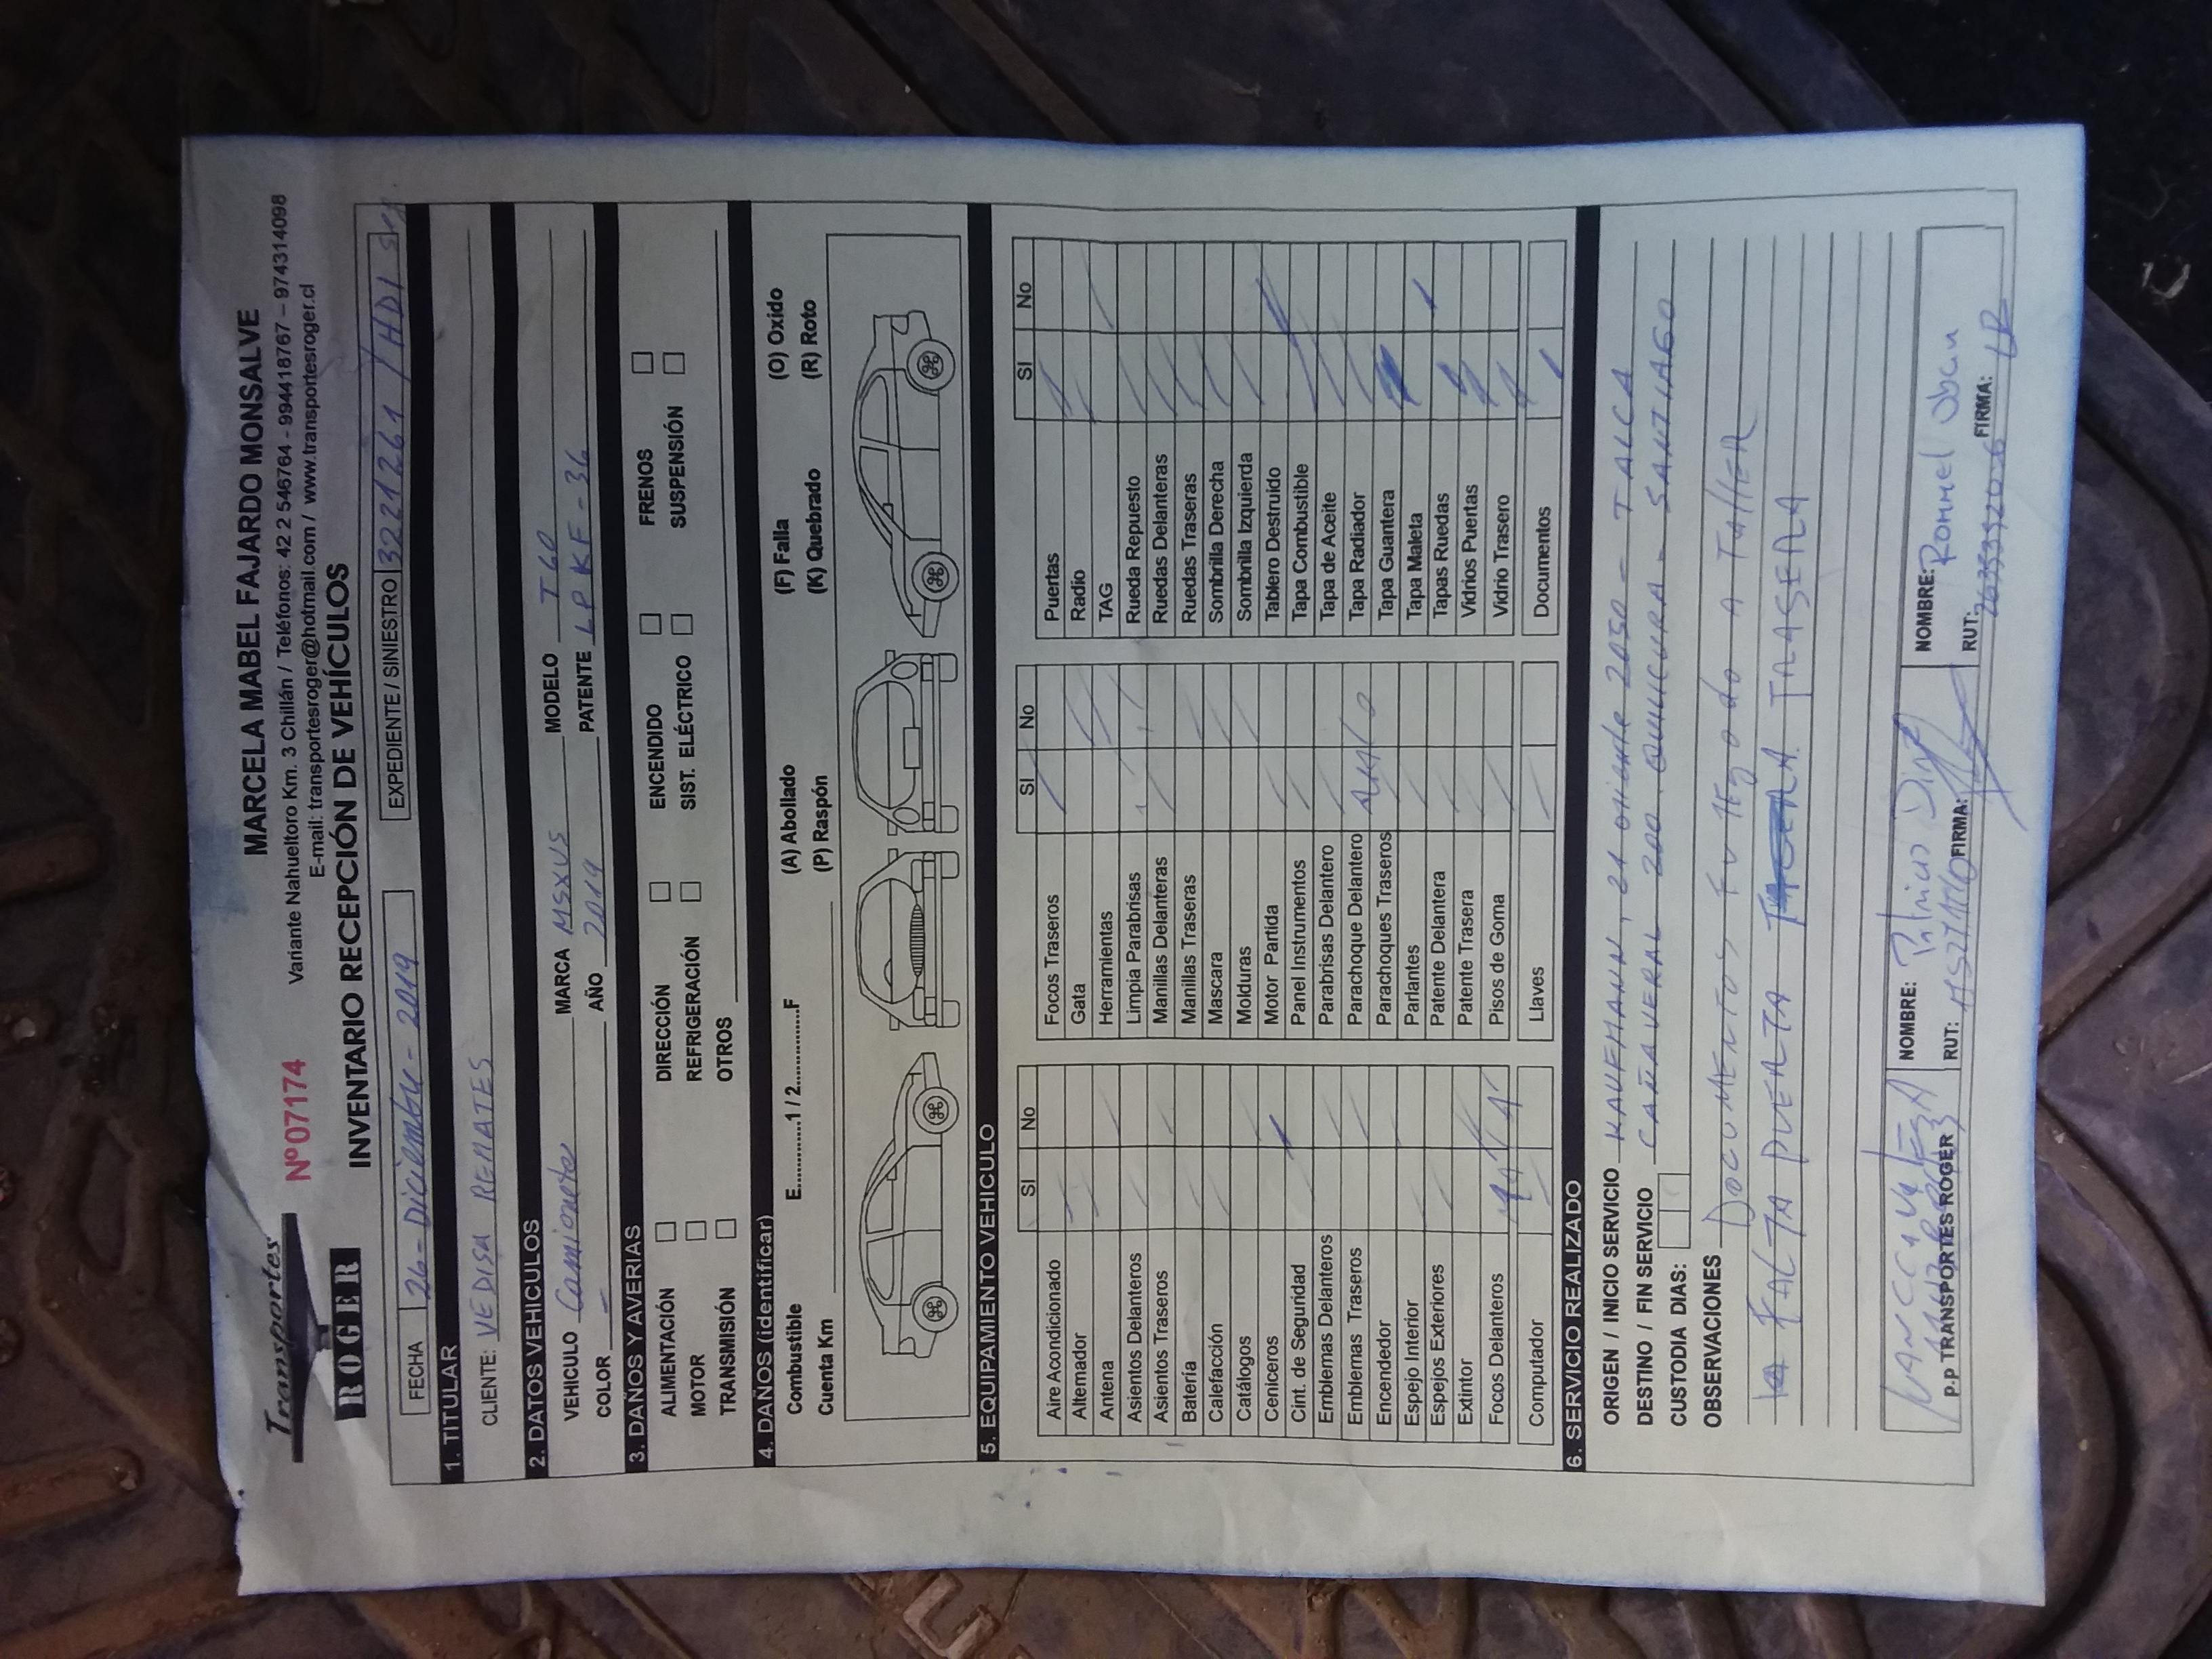 Transportes
ROGER
Nº 07174
MARCELA MABEL FAJARDO MONSALVE
Variante Nahueltoro Km. 3 Chillán / Teléfonos: 42 2 546764 - 994418767 – 974314098
E-mail: transportesroger@hotmail.com / www.transportesroger.cl
INVENTARIO RECEPCIÓN DE VEHÍCULOS
FECHA 26-Diciembre-2019 EXPEDIENTE / SINIESTRO 3221261 / HDI
1. TITULAR
CLIENTE: VEDISA REMATES
2. DATOS VEHICULOS
VEHICULO Camioneta MARCA MSXUS MODELO T60
COLOR – AÑO 2019 PATENTE LPKF-36
3. DAÑOS Y AVERIAS
ALIMENTACIÓN DIRECCIÓN ENCENDIDO FRENOS
MOTOR REFRIGERACIÓN SIST. ELÉCTRICO SUSPENSIÓN
TRANSMISIÓN OTROS
4. DAÑOS (identificar)
Combustible E............1 / 2............F (A) Abollado (F) Falla (O) Oxido
Cuenta Km (P) Raspón (K) Quebrado (R) Roto
5. EQUIPAMIENTO VEHICULO
SI No
Aire Acondicionado
Alternador
Antena
Asientos Delanteros
Asientos Traseros
Batería
Calefacción
Catálogos
Ceniceros
Cint. de Seguridad
Emblemas Delanteros
Emblemas Traseros
Encendedor
Espejo Interior
Espejos Exteriores
Extintor
Focos Delanteros
Computador
SI No
Focos Traseros
Gata
Herramientas
Limpia Parabrisas
Manillas Delanteras
Manillas Traseras
Mascara
Molduras
Motor Partida
Panel Instrumentos
Parabrisas Delantero
Parachoque Delantero
Parachoques Traseros
Parlantes
Patente Delantera
Patente Trasera
Pisos de Goma
Llaves
SI No
Puertas
Radio
TAG
Rueda Repuesto
Ruedas Delanteras
Ruedas Traseras
Sombrilla Derecha
Sombrilla Izquierda
Tablero Destruido
Tapa Combustible
Tapa de Aceite
Tapa Radiador
Tapa Guantera
Tapa Maleta
Tapas Ruedas
Vidrios Puertas
Vidrio Trasero
Documentos
6. SERVICIO REALIZADO
ORIGEN / INICIO SERVICIO KAUFMANN, 21 oriente 2050 - TALCA
DESTINO / FIN SERVICIO CAÑAVERAL 200 QUILICURA - SANTIAGO
CUSTODIA DIAS:
OBSERVACIONES DOCUMENTOS A TALLER
FALTA PUERTA TRASERA
p.p TRANSPORTES ROGER
NOMBRE: Patricio
RUT: FIRMA:
NOMBRE: Rommel
RUT: FIRMA: